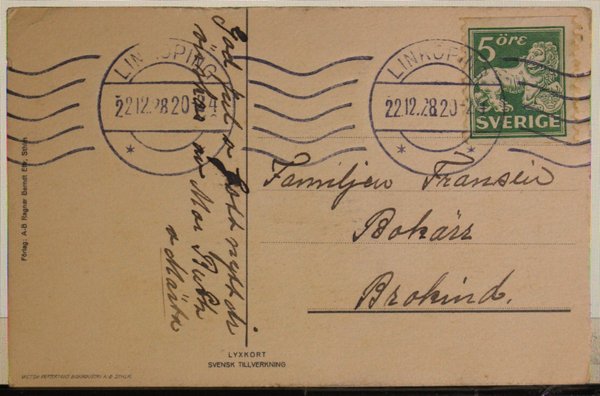 LINKÖPING
22.12.28.20-24
*
LINKÖPING
22.12.28.20-24
*
5 ÖRE
SVERIGE
God Jul o Gott nytt år
önskas av Mor Ruth
o Märta
Familjen Fransén
Bokärr
Brokind.
Förlag: A.-B Ragnar Berndt Eftr, Sthlm
LYXKORT
SVENSK TILLVERKNING